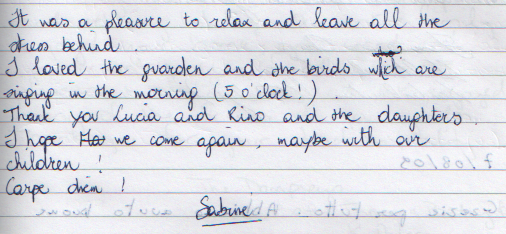 It was a pleasure to relax and leave all the
stress behind.
I loved the guarden and the birds wich are
singing in the morning (5 o'clock!).
Thank you Lucia and Rino and the daughters.
I hope we come again, maybe with our
children!
Carpe diem!
Sabine